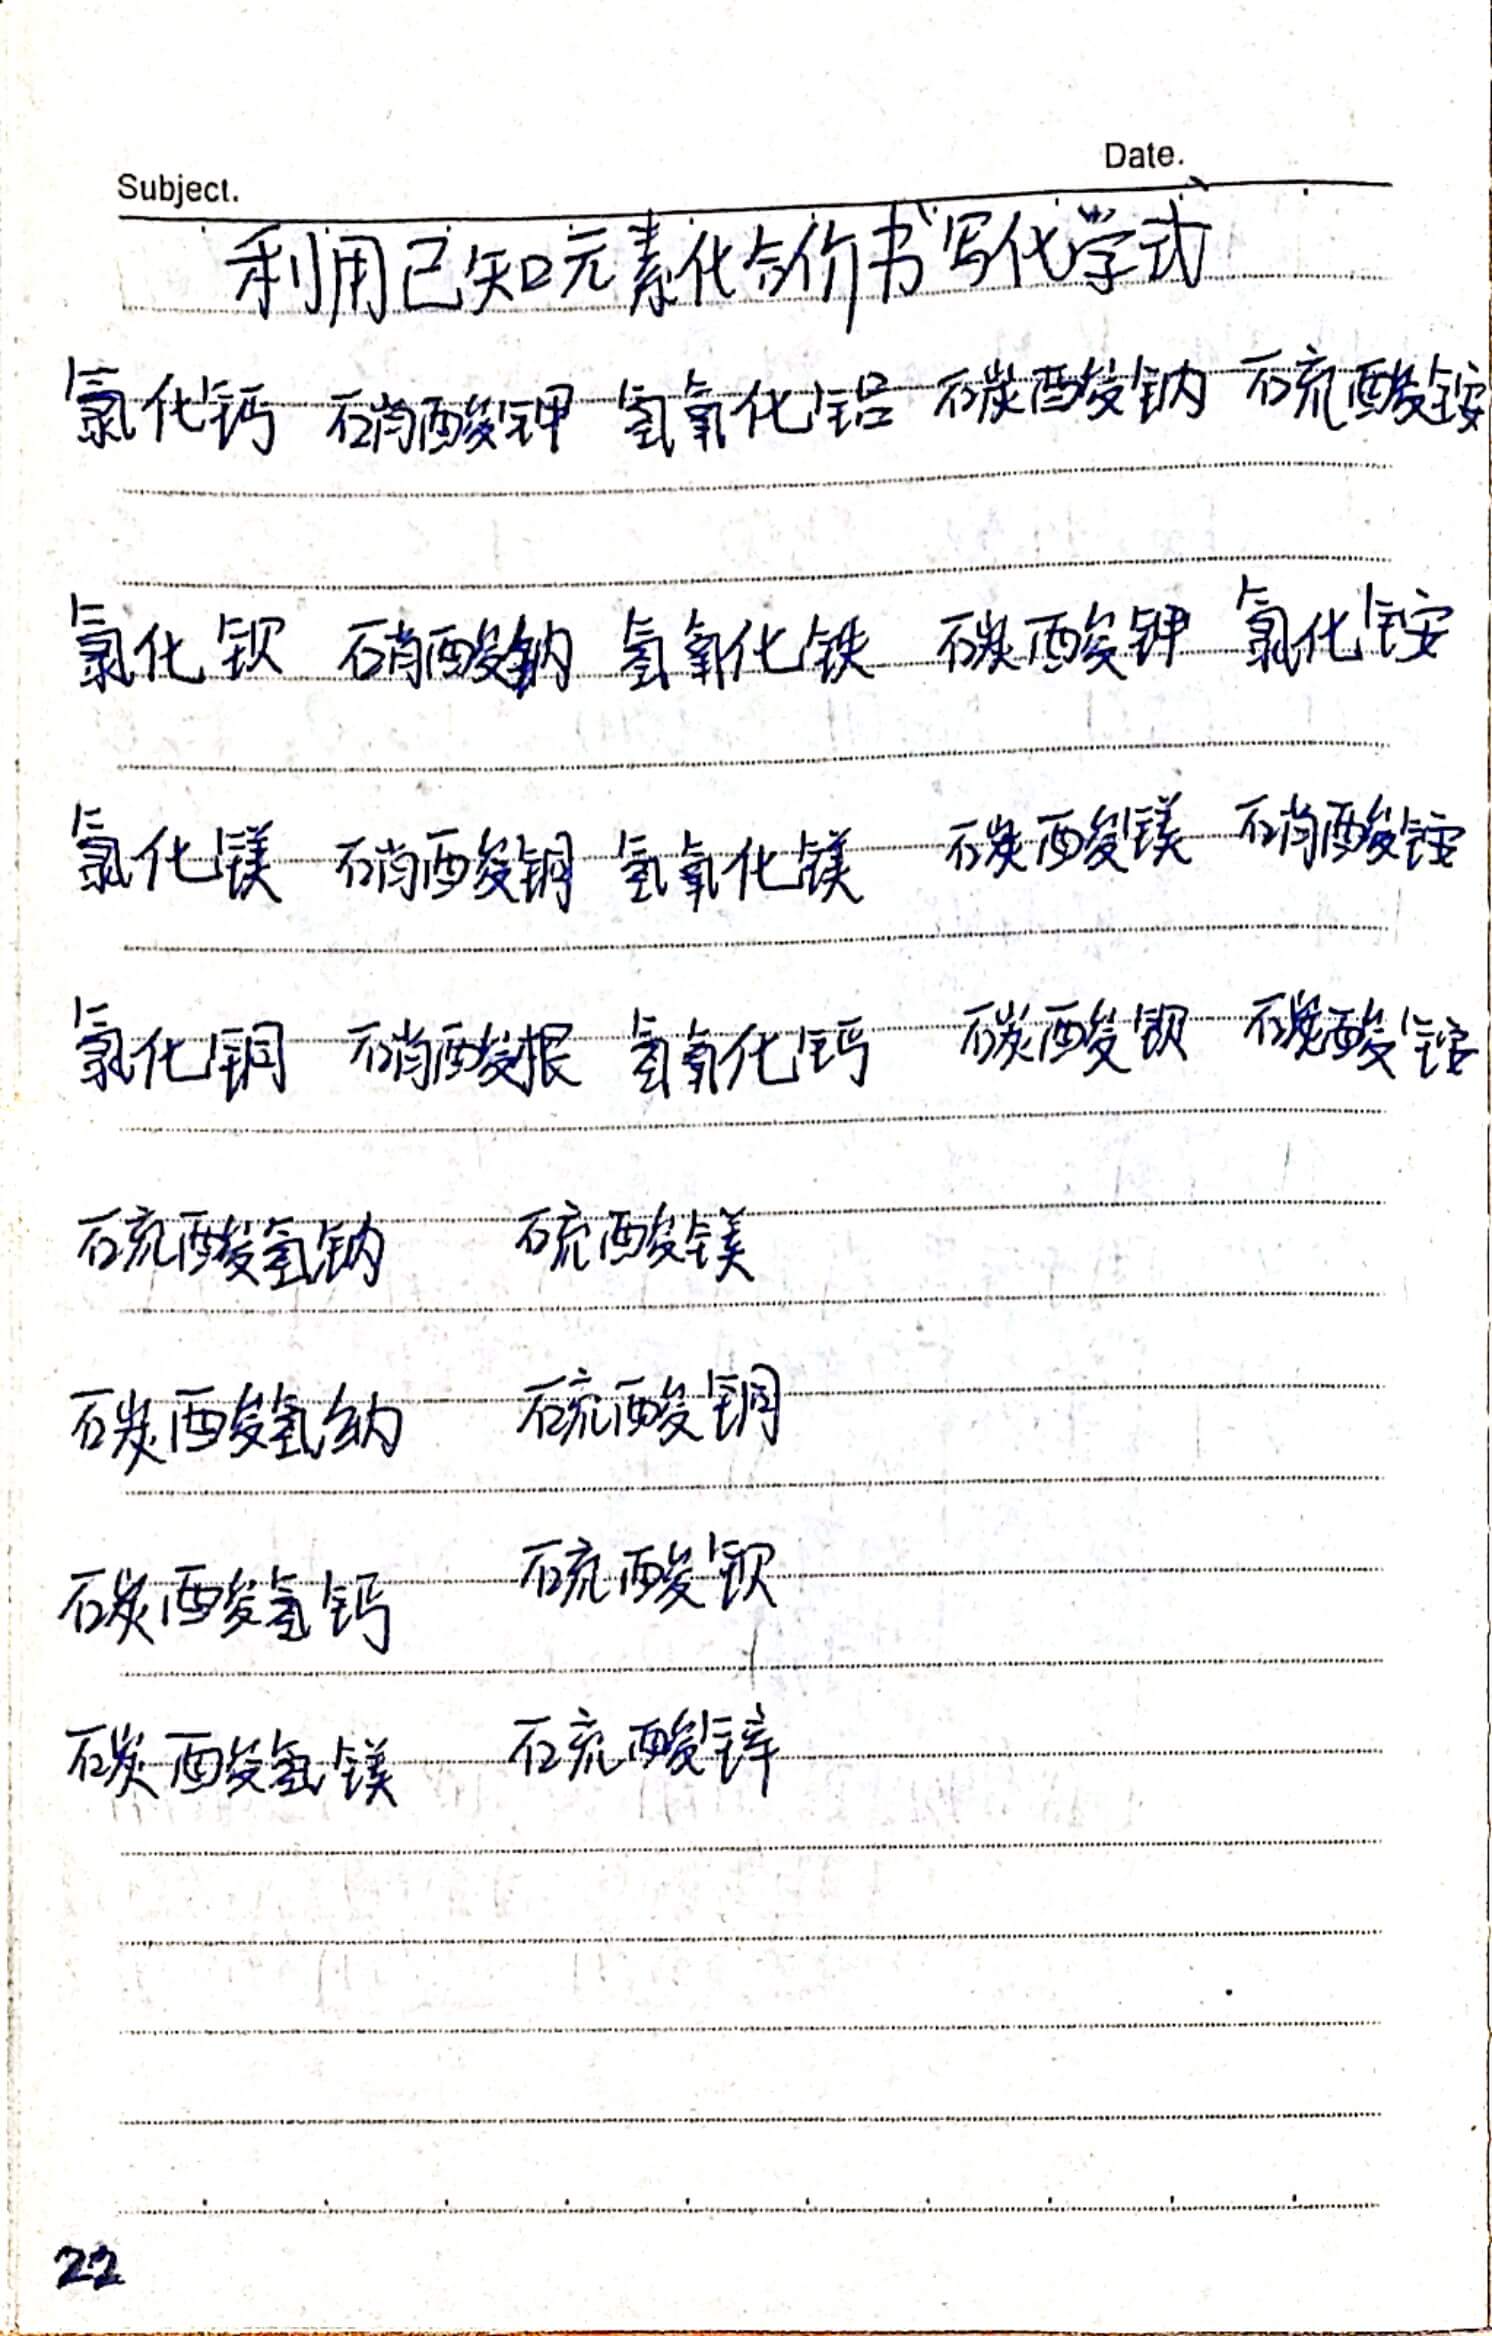 Subject.
Date.
利用己知元素化合价书写化学式
氯化钙 硝酸钾 氢氧化铝 碳酸钠 硫酸铵
氯化钡 硝酸钠 氢氧化铁 碳酸钾 氯化铵
氯化镁 硝酸铜 氢氧化镁 碳酸镁 硝酸铵
氯化铜 硝酸根 氢氧化钙 碳酸钡 碳酸铵
硫酸氢钠 硫酸镁
碳酸氢纳 硫酸铜
碳酸氢钙 硫酸钡
碳酸氢镁 硫酸锌
22